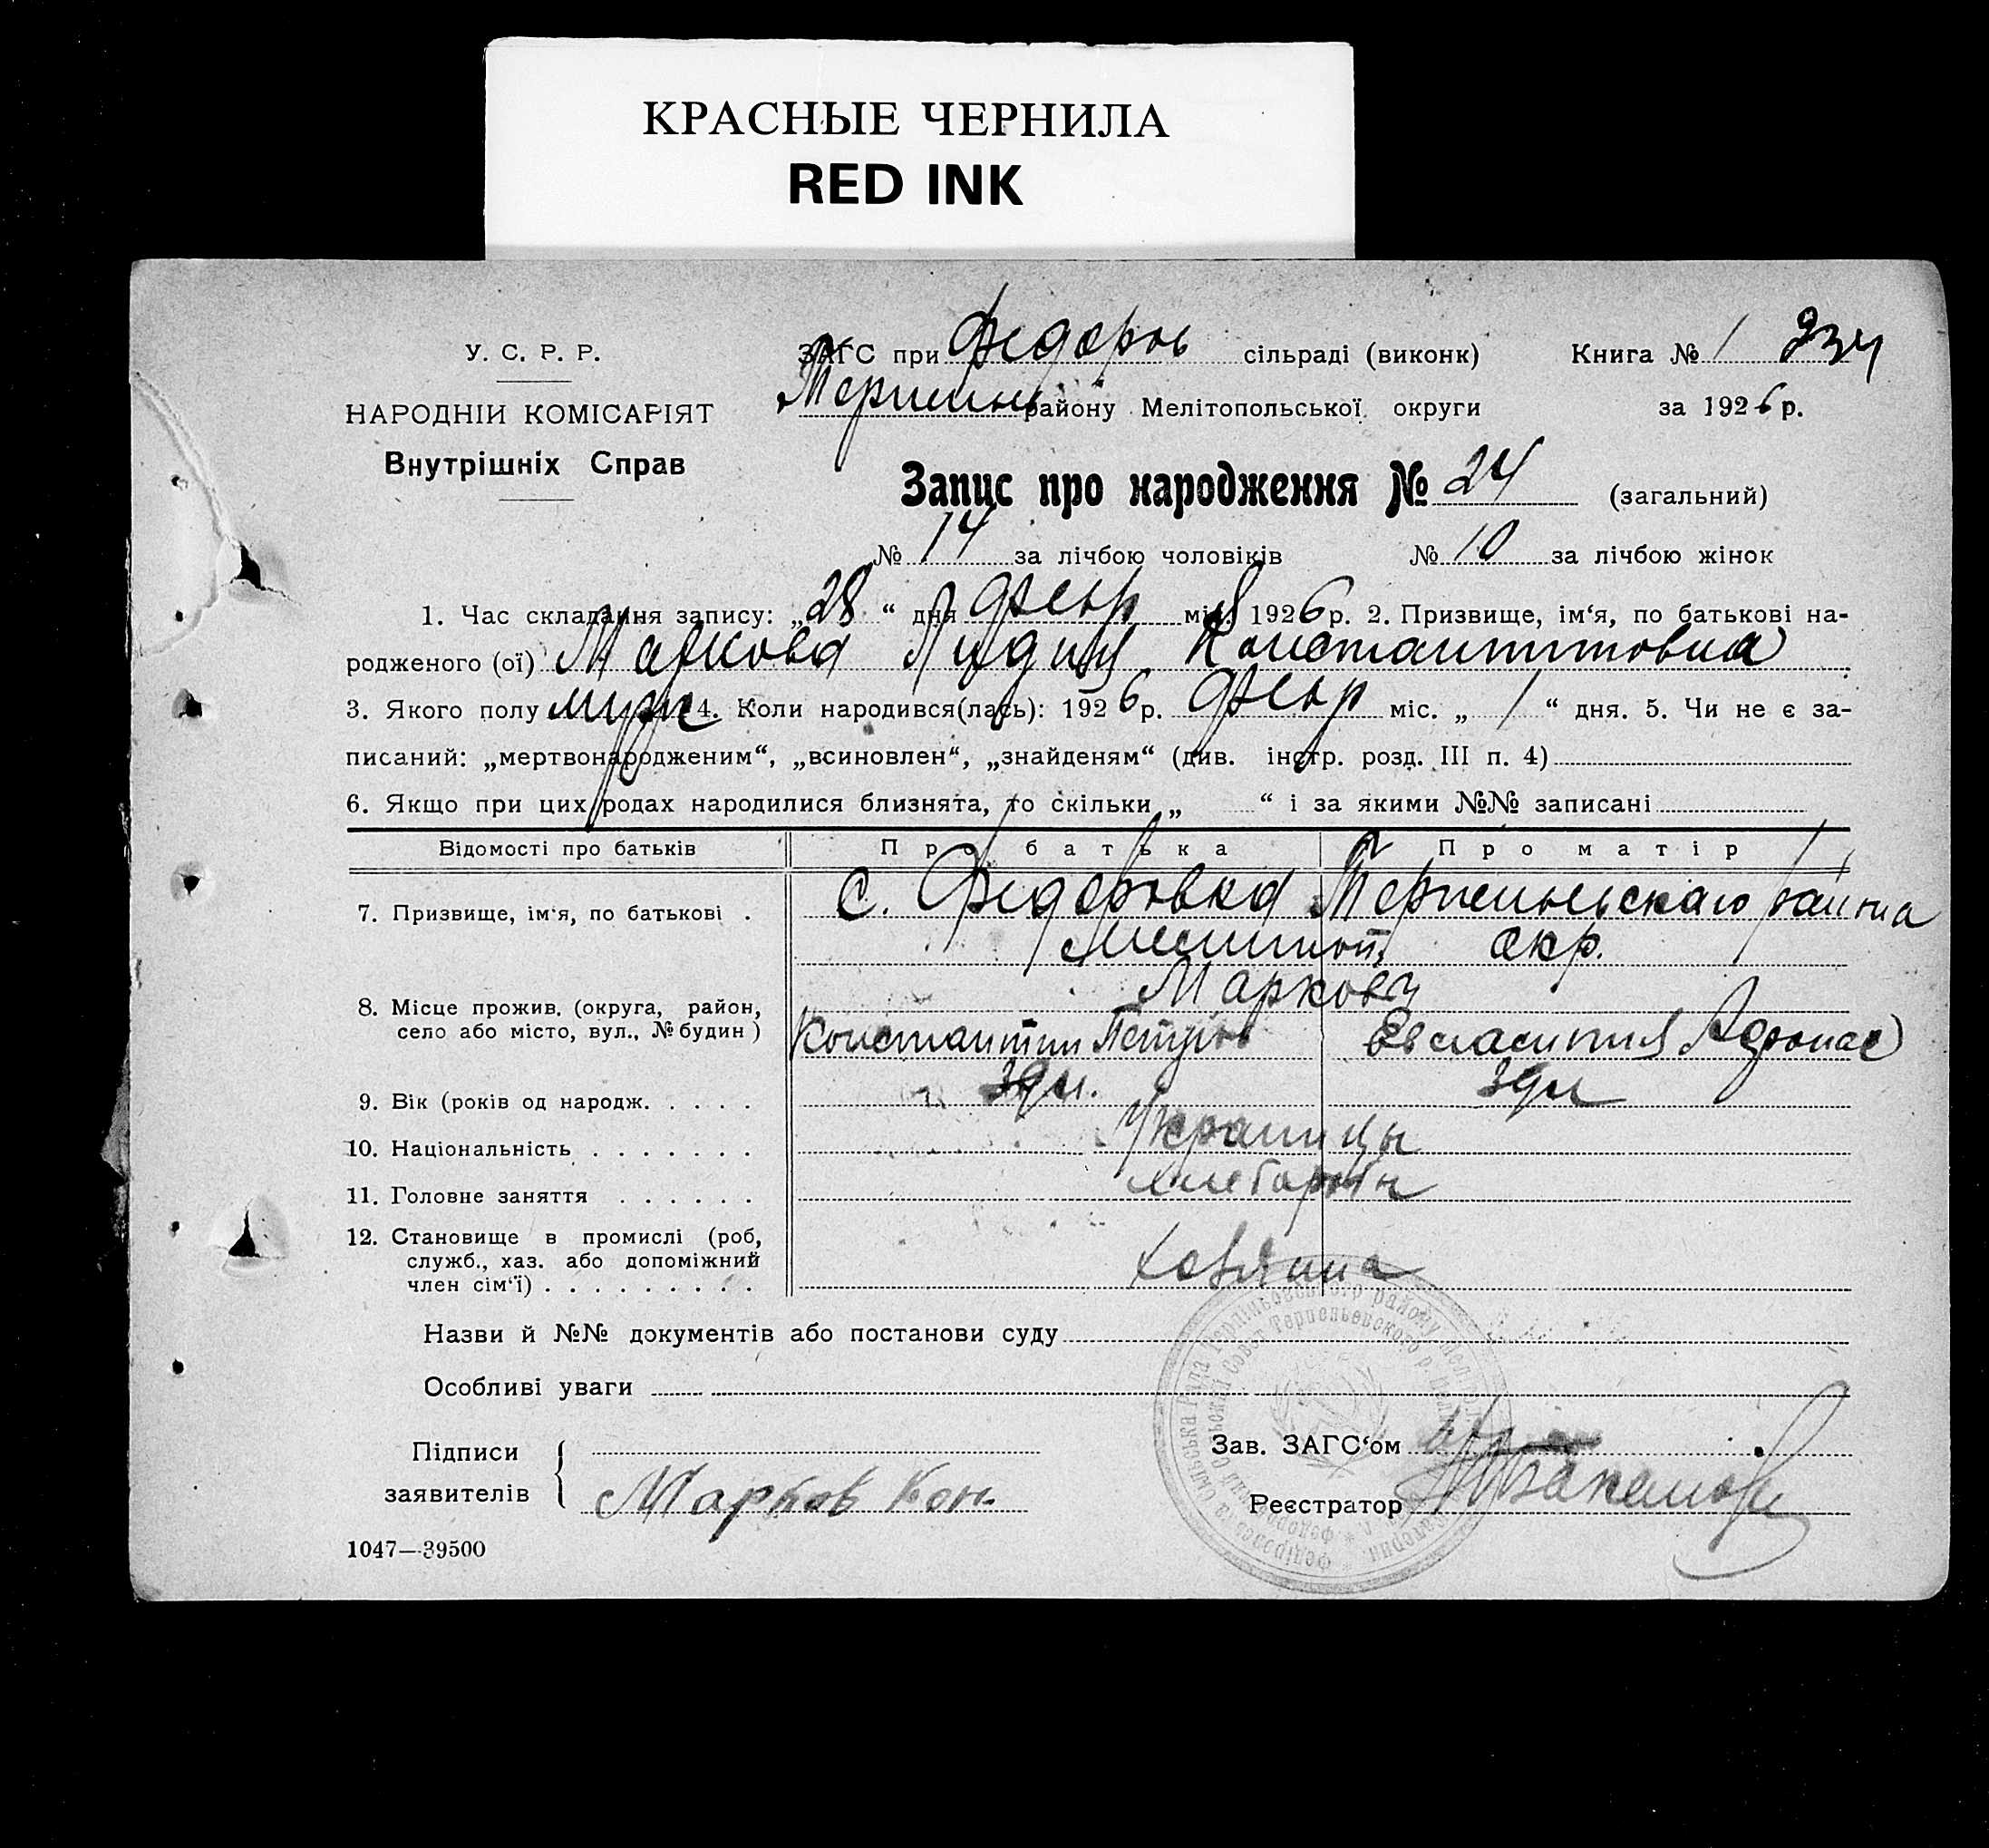 КРАСНЫЕ ЧЕРНИЛА
RED INK
У. С. Р. Р.
НАРОДНІЙ КОМІСАРІЯТ
Внутрішніх Справ
ЗАГС при Федоров сільраді (виконк) Книга № 1 234
Терпень району Мелітопольської округи за 1926 р.
Запис про народження № 24 (загальний)
№ 14 за лічбою чоловіків № 10 за лічбою жінок
1. Час складання запису: „28“ дня февр міс. 1926 р. 2. Призвище, ім‘я, по батькові на-
родженого (ої) Маркова Лидия Константиновна
3. Якого полу муж 4. Коли народився(лась): 1926 р. февр міс. „1“ дня. 5. Чи не є за-
писаний: „мертвонародженим“, „всиновлен“, „знайденям“ (див. інстр. розд. III п. 4)
6. Якщо при цих родах народилися близнята, то скільки „ “ і за якими №№ записані
Відомості про батьків Про батька Про матір
7. Призвище, ім‘я, по батькові . с. Федоровка Терпеньевскаго района
Мелитоп. окр.
Марковы
8. Місце прожив. (округа, район,
село або місто, вул., № будин) Константин Петров Евгласипия
9. Вік (років од народж. . . . .
10. Національність . . . . . . . Украинцы
11. Головне заняття . . . . . . хлебороб
12. Становище в промислі (роб,
служб., хаз. або допоміжний
член сім‘ї) . . . . . . . . . хозяина
Назви й №№ документів або постанови суду
Особливі уваги
Підписи Зав. ЗАГС‘ом
заявителів Марков Кон. Реєстратор
1047—39500